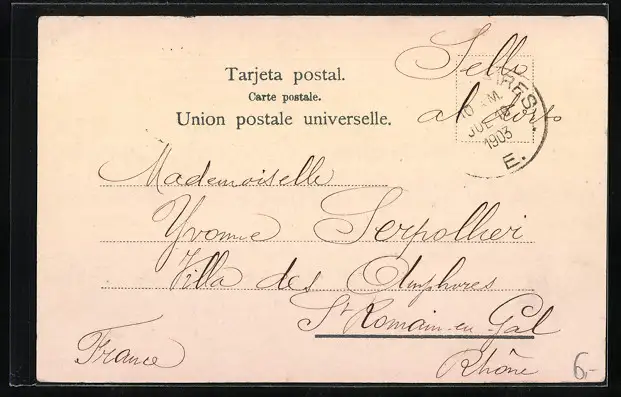 Tarjeta postal.
Carte postale.
Union postale universelle.
Sello
al dorso
RES.
10 AM.
JUL 18
1903
E.
Mademoiselle
Yvonne Serpollier
Villa des Amphores
St Romain-en-Gal
Rhône
France
6,-